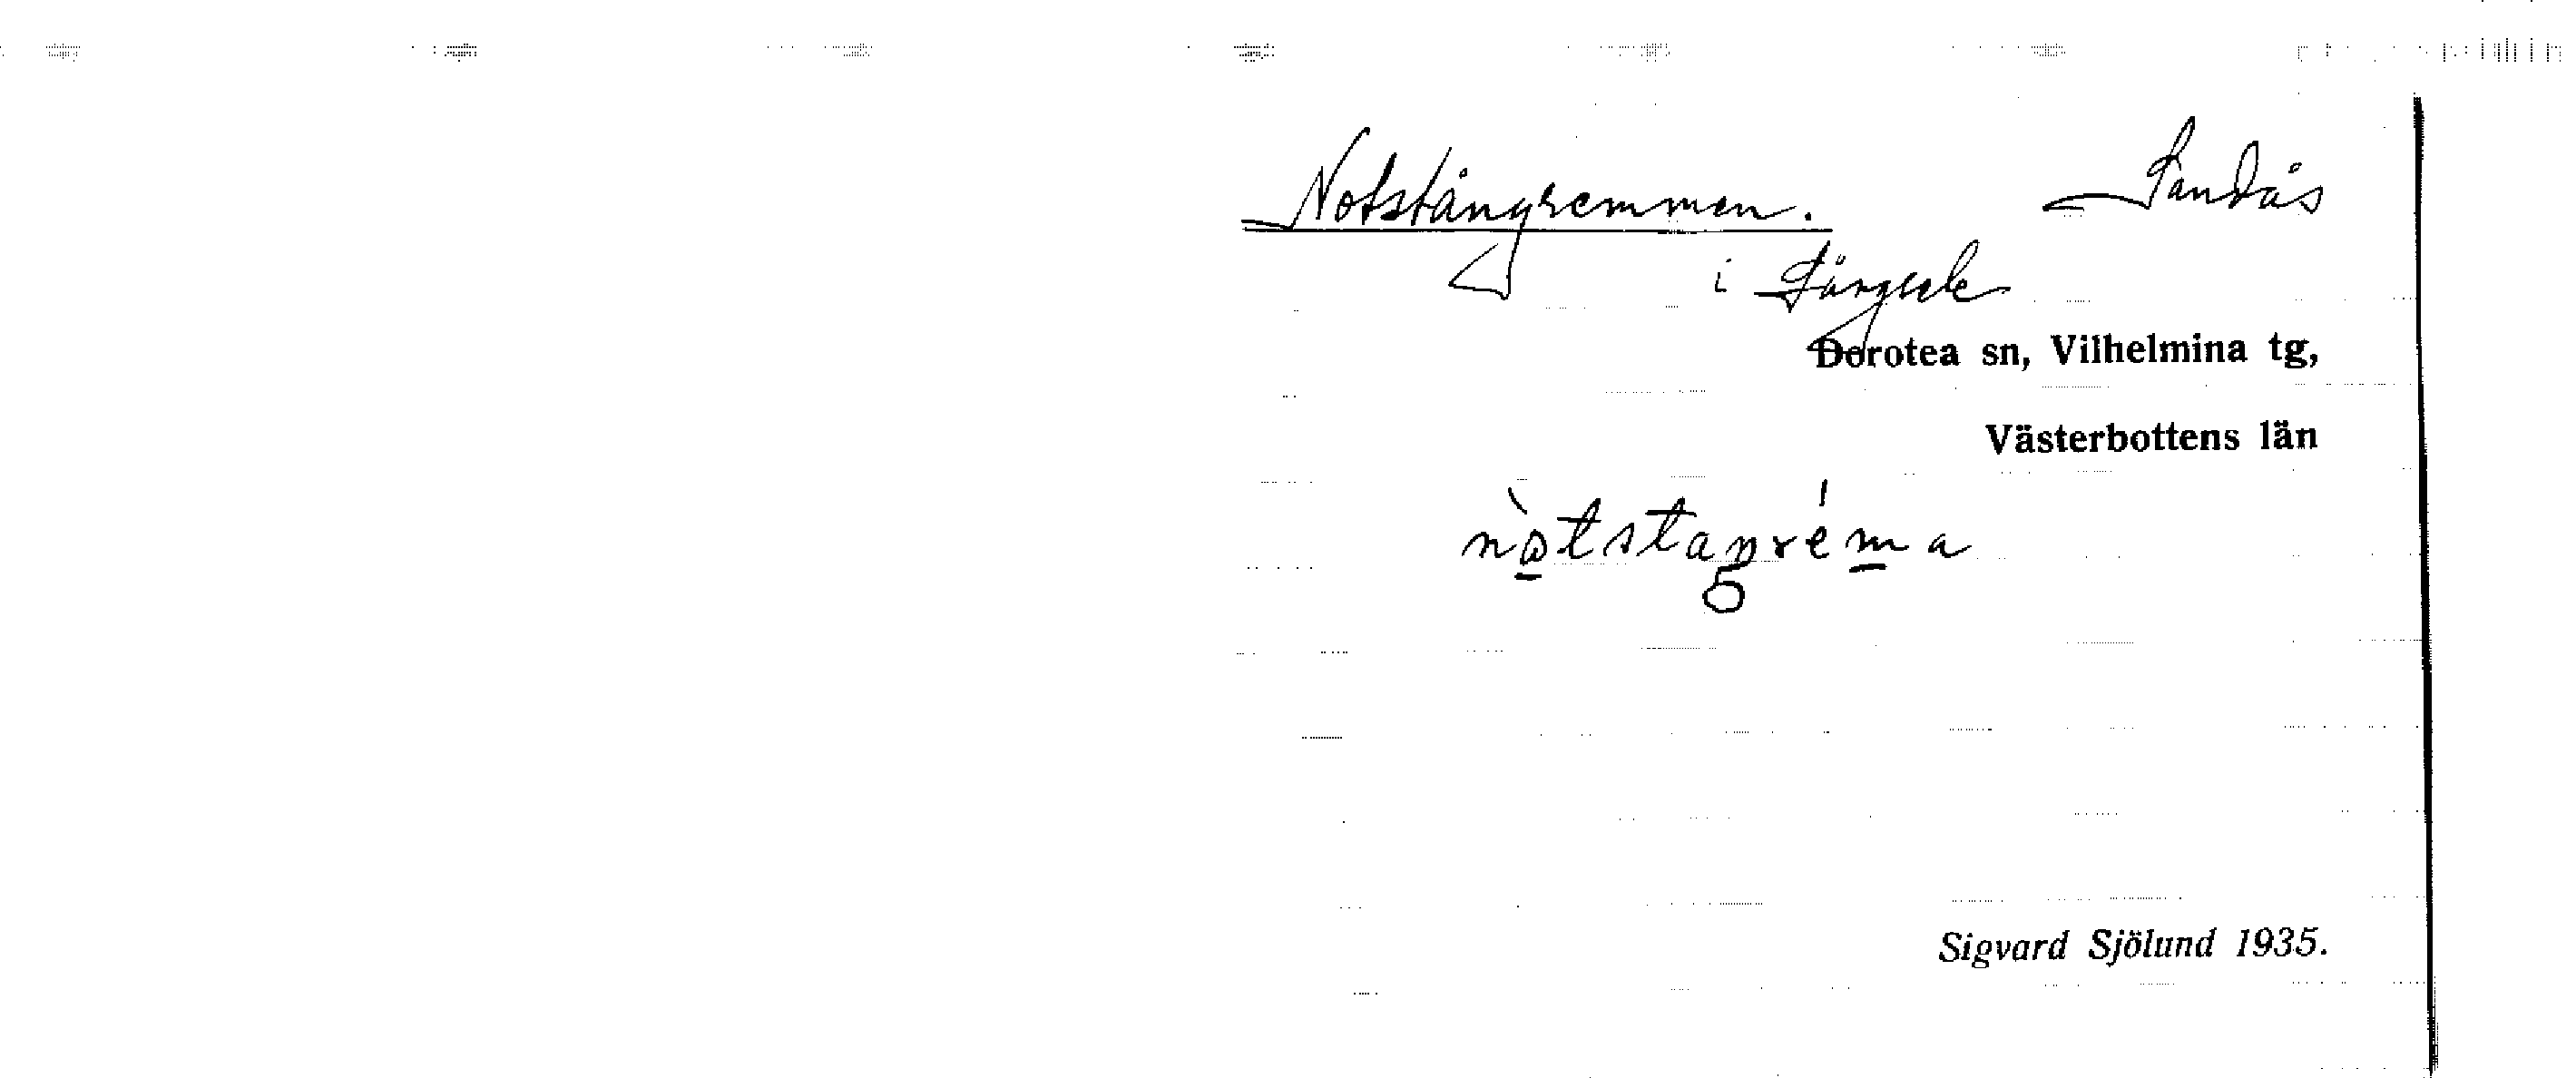 Notstångremmen. Sandås
i Långsele
Dorotea sn, Vilhelmina tg,
Västerbottens län
nòtstaŋréma
Sigvard Sjölund 1935.